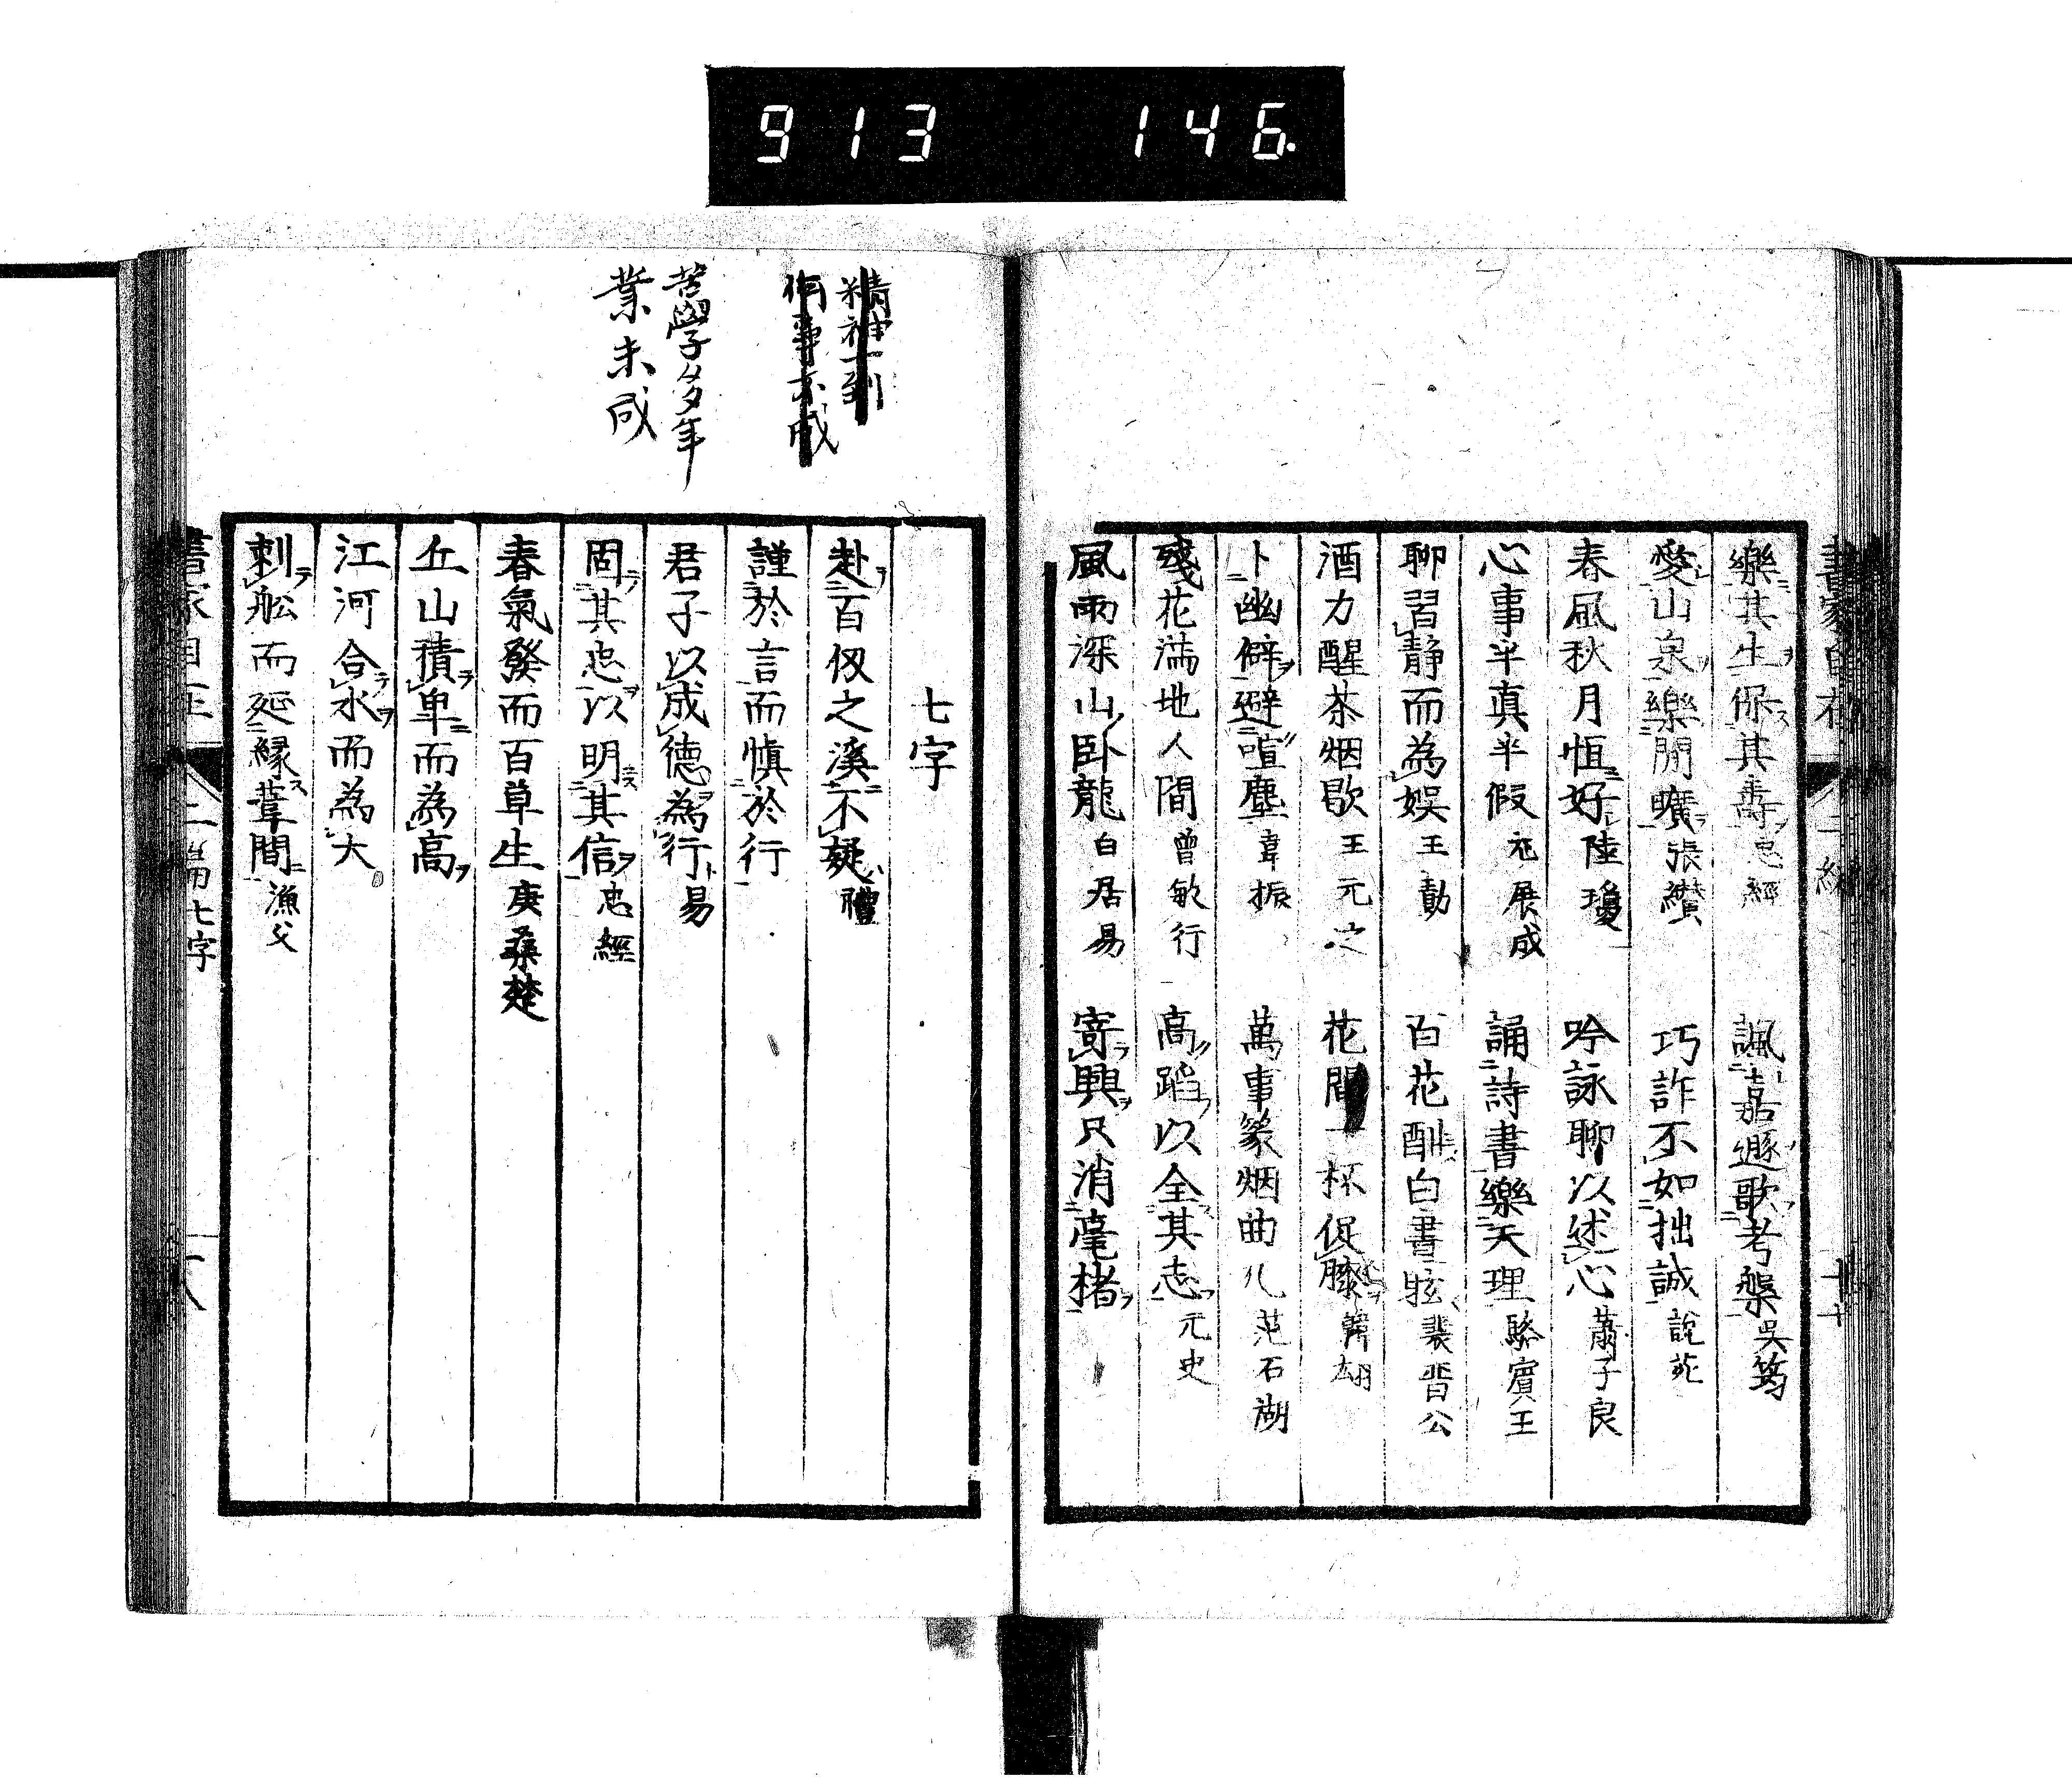 913 146.
樂其生保其壽 忠經 諷嘉遯歌考槃 吳筠
愛山泉樂閒曠 張纘 巧詐不如拙誠 說苑
春風秋月恒好 陸瓊 吟詠聊以述心 蕭子良
心事半真半假 尤展成 誦詩書樂天理 駱賓王
聊習靜而為娛 王勣 百花酣白晝眩 裴晋公
酒力醒茶烟歇 王元之 花間一杯促膝 韓翃
卜幽僻避喧塵 韋振 萬事篆烟曲几 范石湖
殘花滿地人間 曾敏行 高蹈以全其志 元史
風雨深山臥龍 白居易 寄興只消毫楮
精神一到
何事不成
苦學多年
業未成
七字
赴百仭之溪不疑 禮
謹於言而慎於行
君子以成德為行 易
固其忠以明其信 忠經
春氣發而百草生 庚桑楚
丘山積卑而為高
江河合水而為大
刺舩而延緣葦間 漁父
二篇 七字